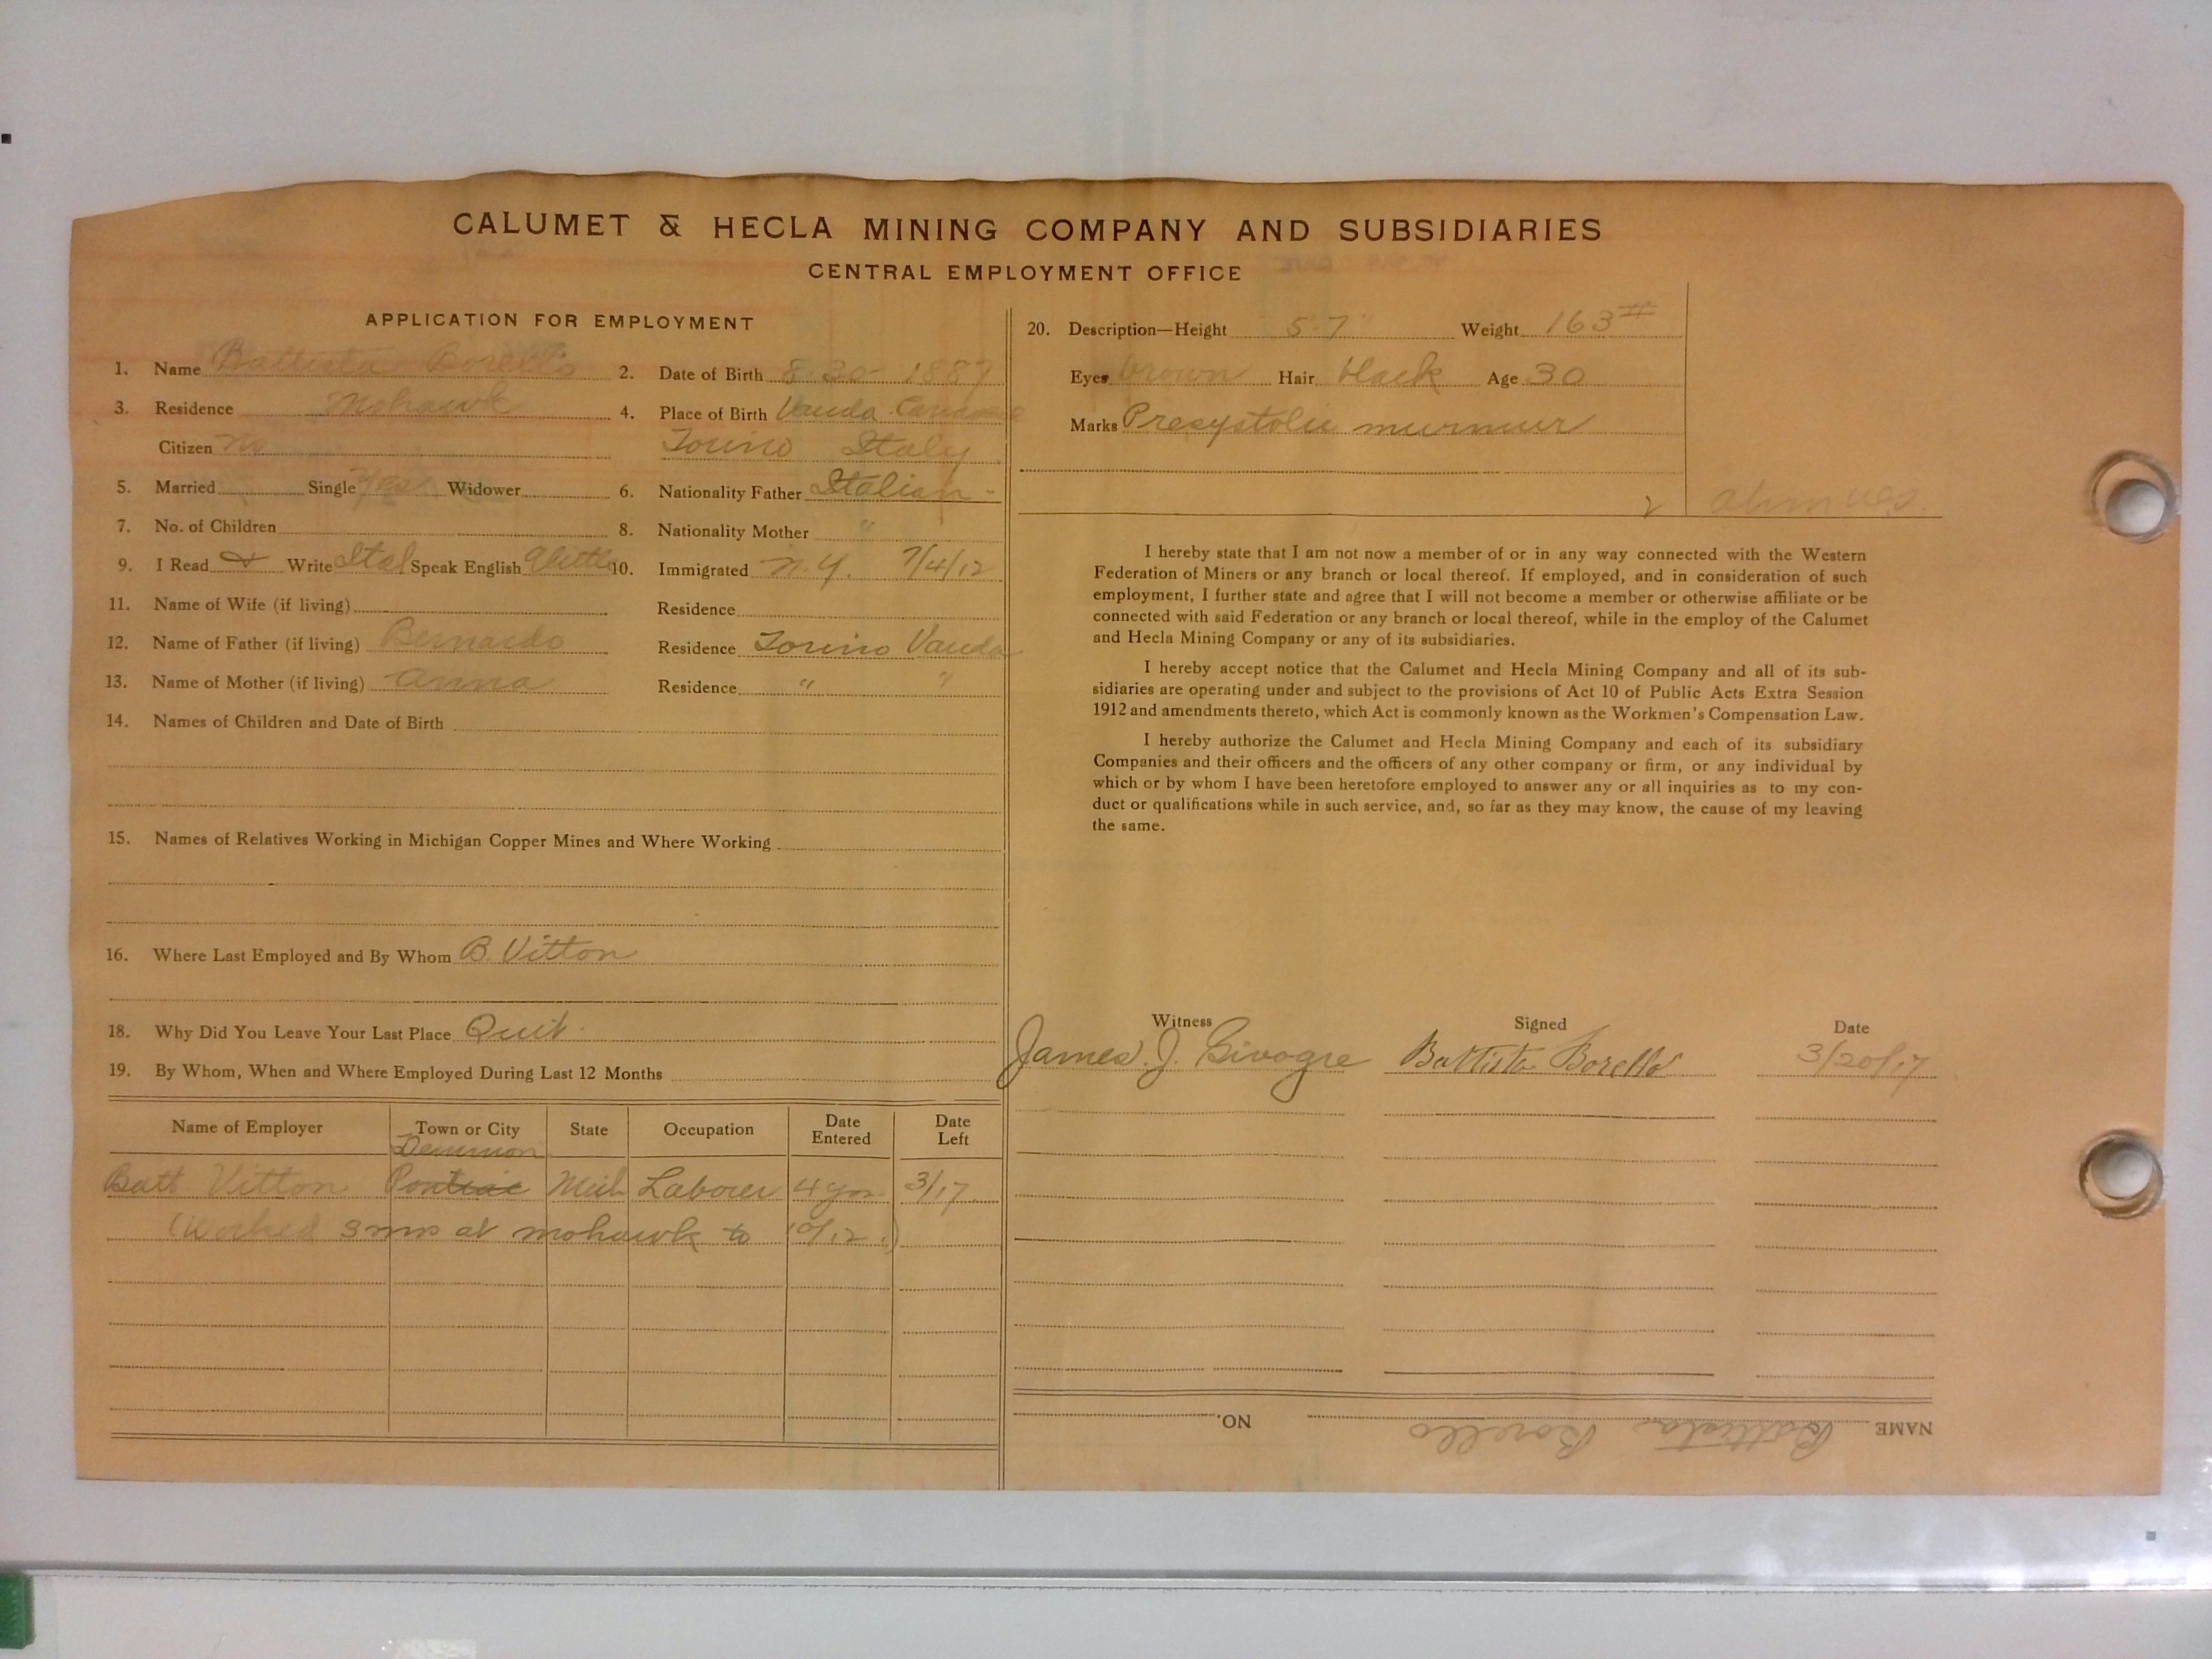 CALUMET & HECLA MINING COMPANY AND SUBSIDIARIES
CENTRAL EMPLOYMENT OFFICE
APPLICATION FOR EMPLOYMENT
1. Name Battista Borello 2. Date of Birth 8-30-1887
3. Residence Mohawk 4. Place of Birth Vauda
Citizen No Torino Italy
5. Married Single Yes Widower 6. Nationality Father Italian -
7. No. of Children 8. Nationality Mother "
9. I Read & Write Ital Speak English a little 10. Immigrated N.Y. 7/4/12
11. Name of Wife (if living) Residence
12. Name of Father (if living) Bernardo Residence Torino Vauda
13. Name of Mother (if living) Anna Residence " "
14. Names of Children and Date of Birth
15. Names of Relatives Working in Michigan Copper Mines and Where Working
16. Where Last Employed and By Whom B. Vitton
18. Why Did You Leave Your Last Place Quit.
19. By Whom, When and Where Employed During Last 12 Months
Name of Employer Town or City State Occupation Date Entered Date Left
Batt Vitton Pontiac Mich Laborer 4 yrs. 3/17
(Worked 3 mos at Mohawk to 10/12.)
20. Description—Height 5'-7" Weight 163#
Eyes brown Hair black Age 30
Marks Presystolic murmur
I hereby state that I am not now a member of or in any way connected with the Western
Federation of Miners or any branch or local thereof. If employed, and in consideration of such
employment, I further state and agree that I will not become a member or otherwise affiliate or be
connected with said Federation or any branch or local thereof, while in the employ of the Calumet
and Hecla Mining Company or any of its subsidiaries.
I hereby accept notice that the Calumet and Hecla Mining Company and all of its sub-
sidiaries are operating under and subject to the provisions of Act 10 of Public Acts Extra Session
1912 and amendments thereto, which Act is commonly known as the Workmen's Compensation Law.
I hereby authorize the Calumet and Hecla Mining Company and each of its subsidiary
Companies and their officers and the officers of any other company or firm, or any individual by
which or by whom I have been heretofore employed to answer any or all inquiries as to my con-
duct or qualifications while in such service, and, so far as they may know, the cause of my leaving
the same.
Witness Signed Date
James. J. Givogre Battista Borello 3/20/17
NAME Battista Borello NO.